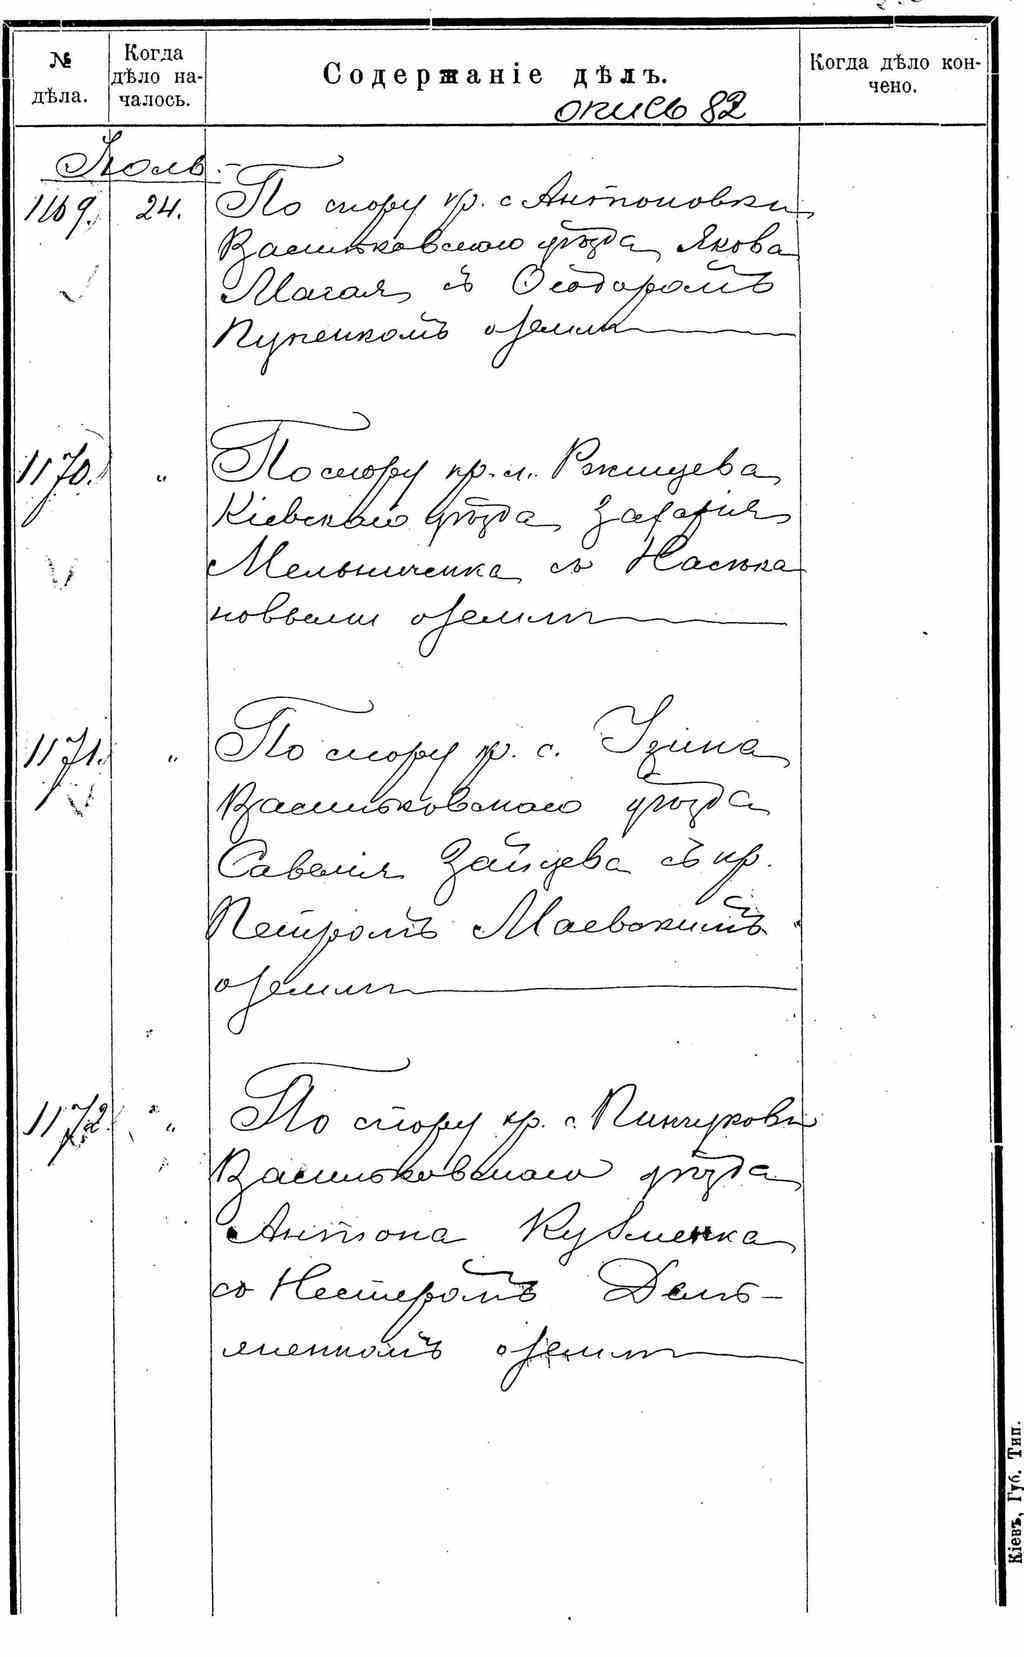 № дѣла.
Когда дѣло на-
чалось.
Содержаніе дѣлъ.
Когда дѣло кон-
чено.
опись 82
Іюль
1169. 24. По спору кр. с Антоновки
Васильковскаго уѣзда Якова
Магая съ Ѳеодоромъ
Пупенкомъ о землѣ
1170. „ По спору кр. м. Ржищева
Кіевскаго уѣзда Захарія
Мельниченка съ Насѣка
новыми о землѣ
1171. „ По спору кр. с. Узина
Васильковскаго уѣзда
Савелія Зайцева съ кр.
Петромъ Маевскимъ
о землѣ
1172. „ По спору кр. с. Пинчуковъ
Васильковскаго уѣзда
Антона Кузменка
съ Нестеромъ Демь-
яненкомъ о землѣ
Кіевъ, Губ. Тип.